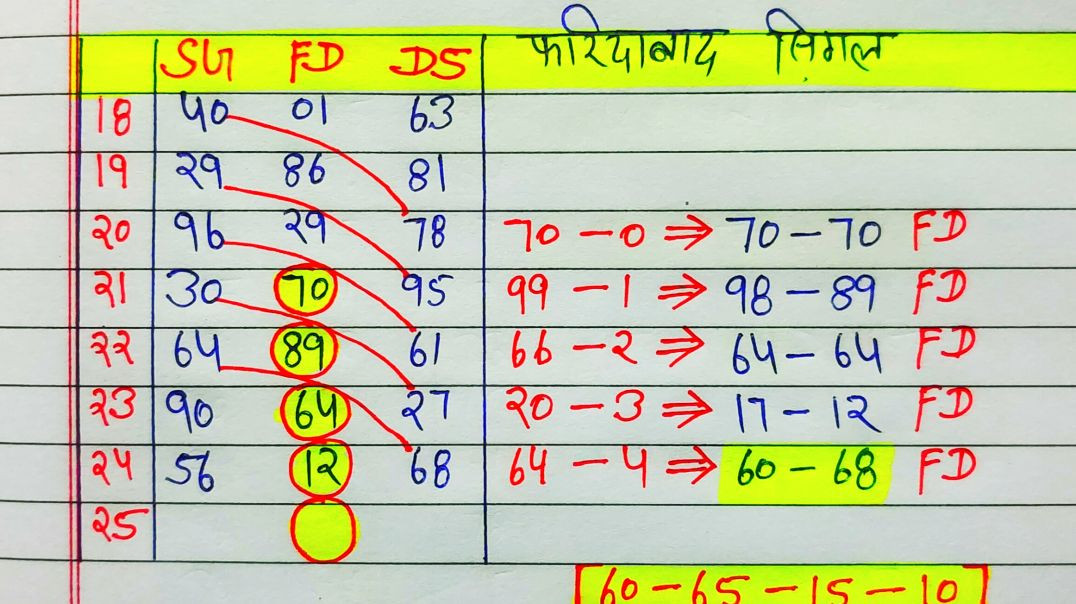 SG FD DS फरिदाबाद सिंगल
18 40 01 63
19 29 86 81
20 96 29 78 70 - 0 ⇒ 70 - 70 FD
21 30 70 95 99 - 1 ⇒ 98 - 89 FD
22 64 89 61 66 - 2 ⇒ 64 - 64 FD
23 90 64 27 20 - 3 ⇒ 17 - 12 FD
24 56 12 68 64 - 4 ⇒ 60 - 68 FD
25
60 - 65 - 15 - 10